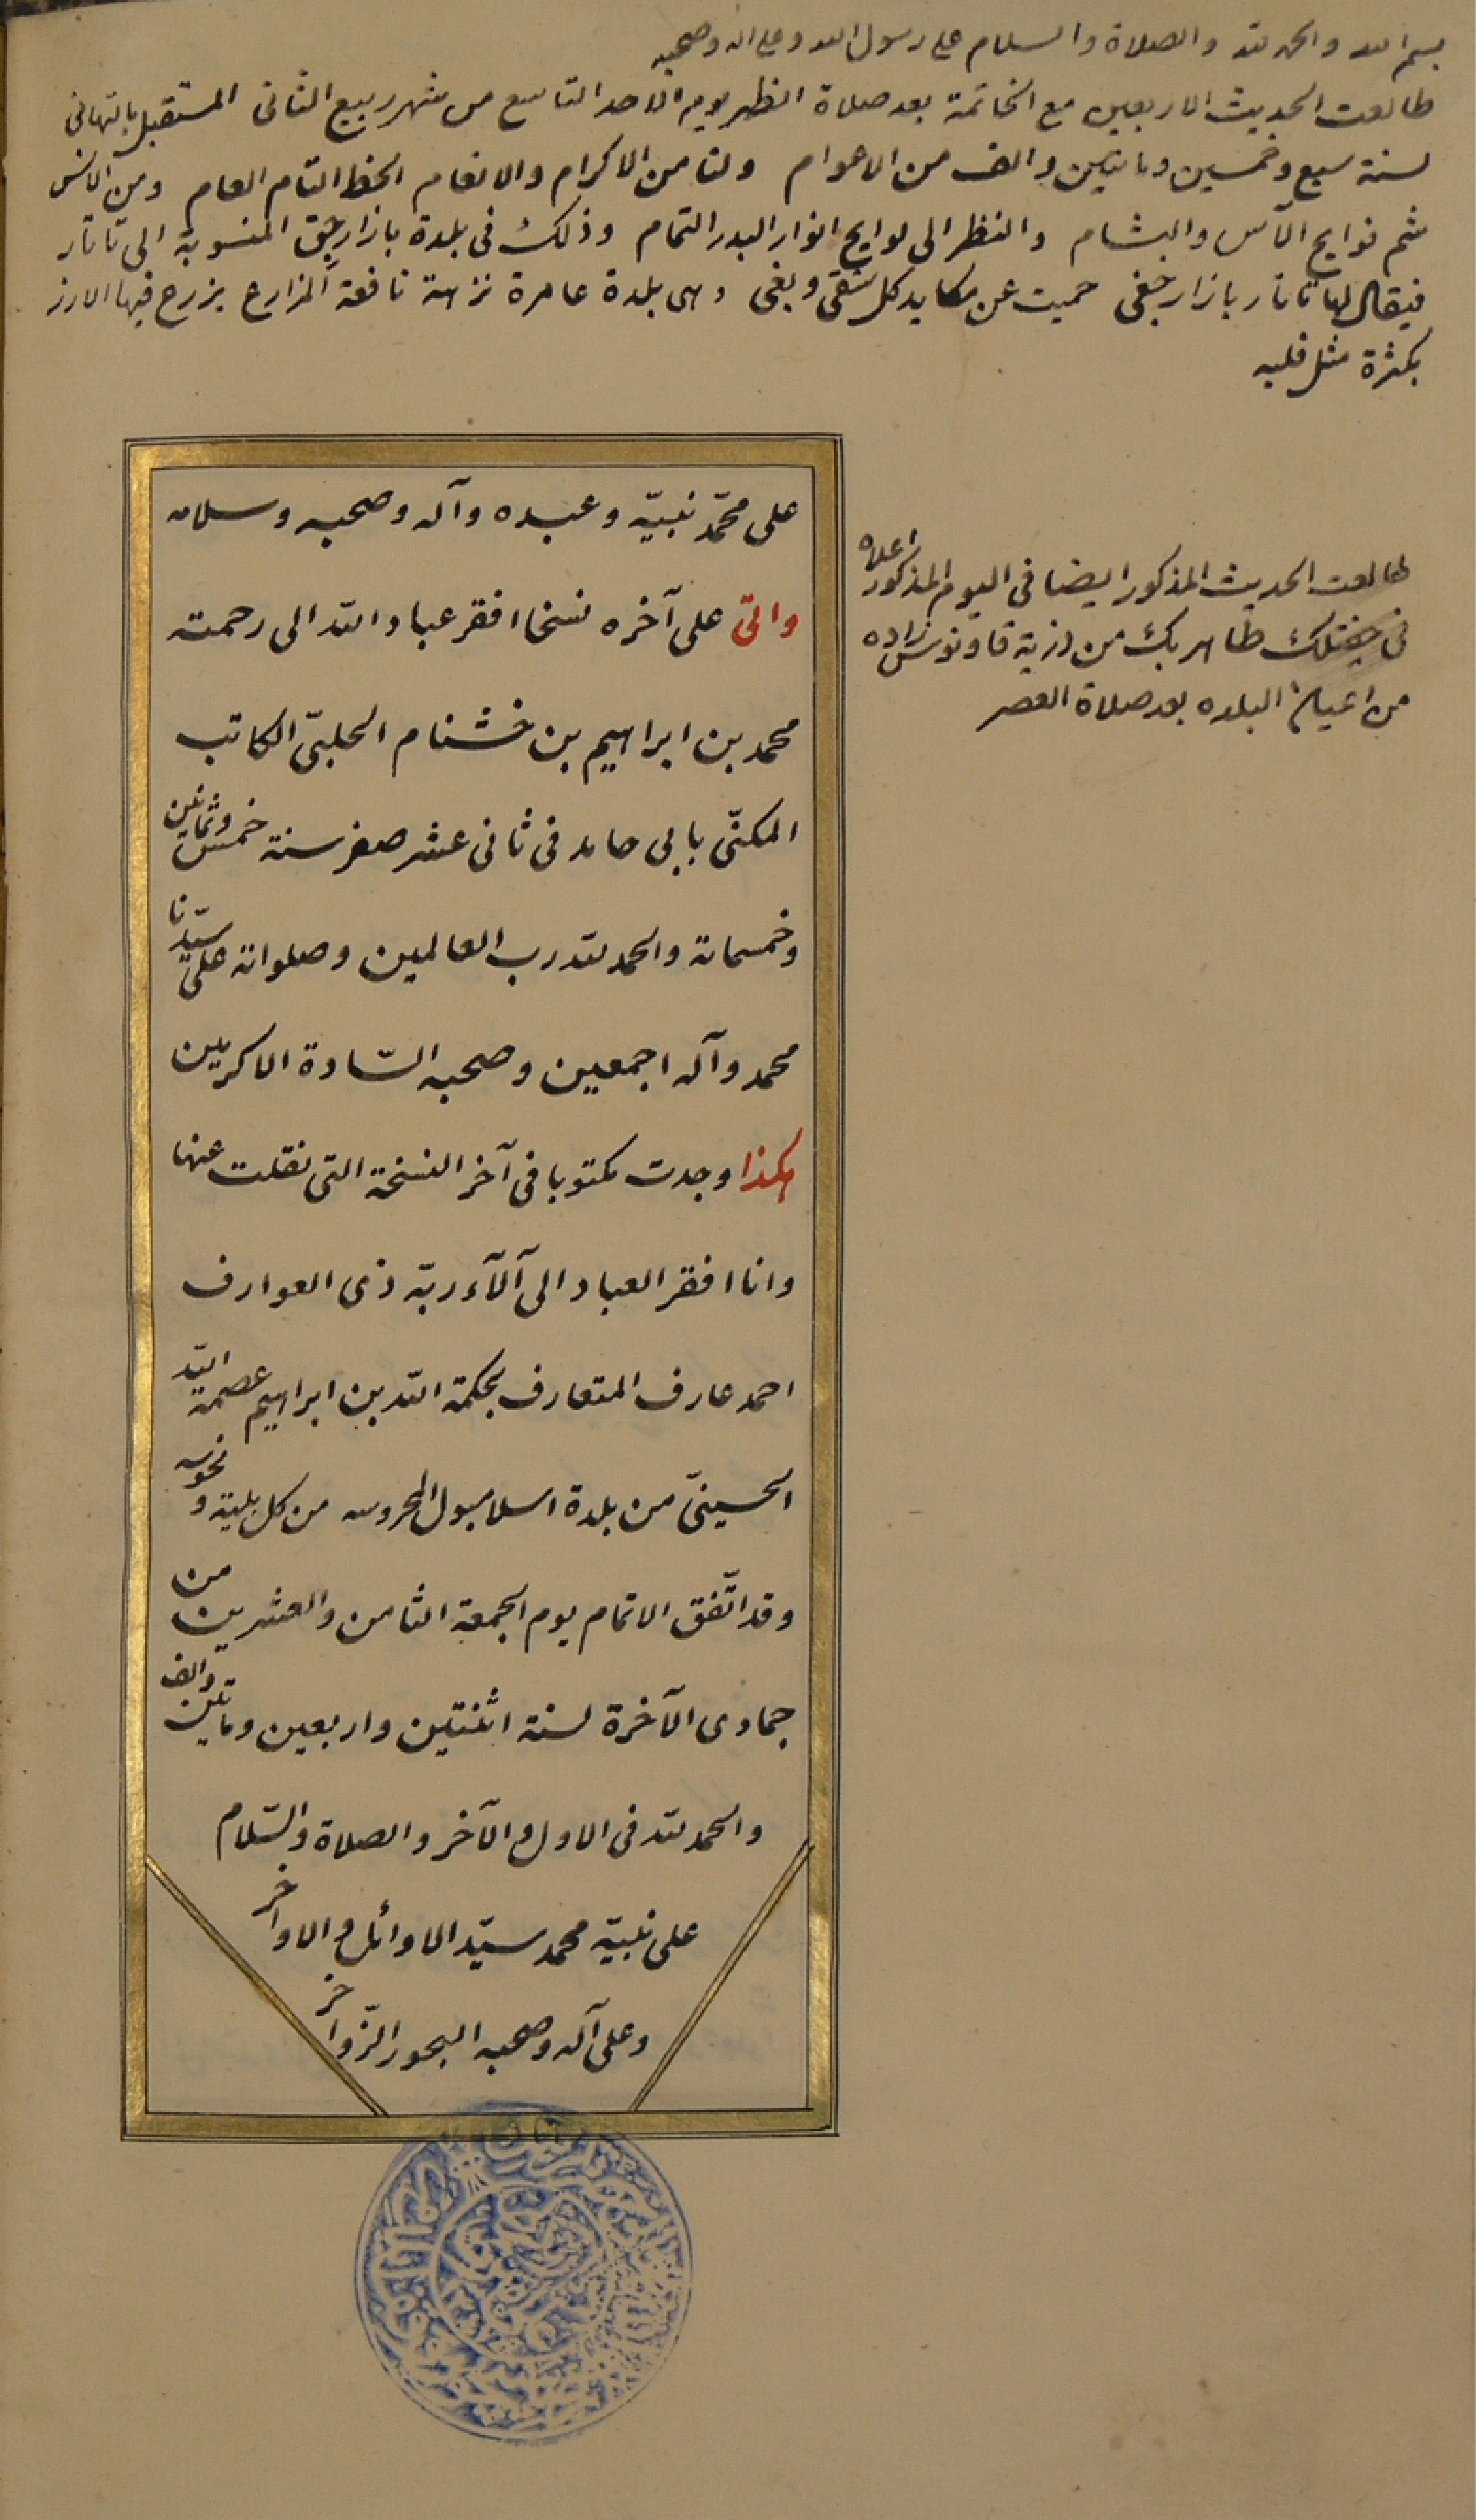 بسم الله والحمد لله والصلاة والسلام على رسول الله وعلى اله وصحبه
طالعت الحديث الاربعين مع الخاتمة بعد صلاة الظهر يوم الاحد التاسع من شهر ربيع الثانى المستقبل بالتهانى
لسنة سبع وخمسين ومايتين والف من الاعوام ولنا من الاكرام والانعام الحظ التام العام ومن الانس
شم فوايح الآس والبشام والنظر الى لوايح انوار البدر التمام وذلك فى بلدة بازارجق المنسوبة الى تاتار
فيقال لها تاتار بازارجغى حميت عن مكايد كل شقى وبغى وهى بلدة عامرة نزهة نافعة المزارع يزرع فيها الارز
بكثرة مثل فلبه
على محمّد نبيّه وعبده وآله وصحبه وسلامه
واتى على آخره نسخا افقر عباد الله الى رحمته
محمد بن ابراهيم بن خشنام الحلبىّ الكاتب
المكنّى بابى حامد فى ثانى عشر صفر سنة خمس وثمانين
وخمسمائة والحمد لله رب العالمين وصلواته على سيّدنا
محمد وآله اجمعين وصحبه السّادة الاكرمين
هكذا وجدت مكتوبا فى آخر النسخة التى نقلت عنها
وانا افقر العباد الى آلآء ربّه ذى العوارف
احمد عارف المتعارف بحكمة الله بن ابراهيم عصمة الله
الحسينىّ من بلدة اسلامبول المحروسه من كل بلية ونحوسه
وقد اتّفق الاتمام يوم الجمعة الثامن والعشرين من
جمادى الآخرة لسنة اثنتين واربعين ومايتين والف
والحمد لله فى الاول والآخر والصلاة والسّلام
على نبيّه محمد سيّد الاوائل والاواخر
وعلى آله وصحبه البحور الزّواخر
طالعت الحديث المذكور ايضا فى اليوم المذكور اعلاه
فى طاهر بك من ذرية قاونوس زاده
من اعيان البلده بعد صلاة العصر